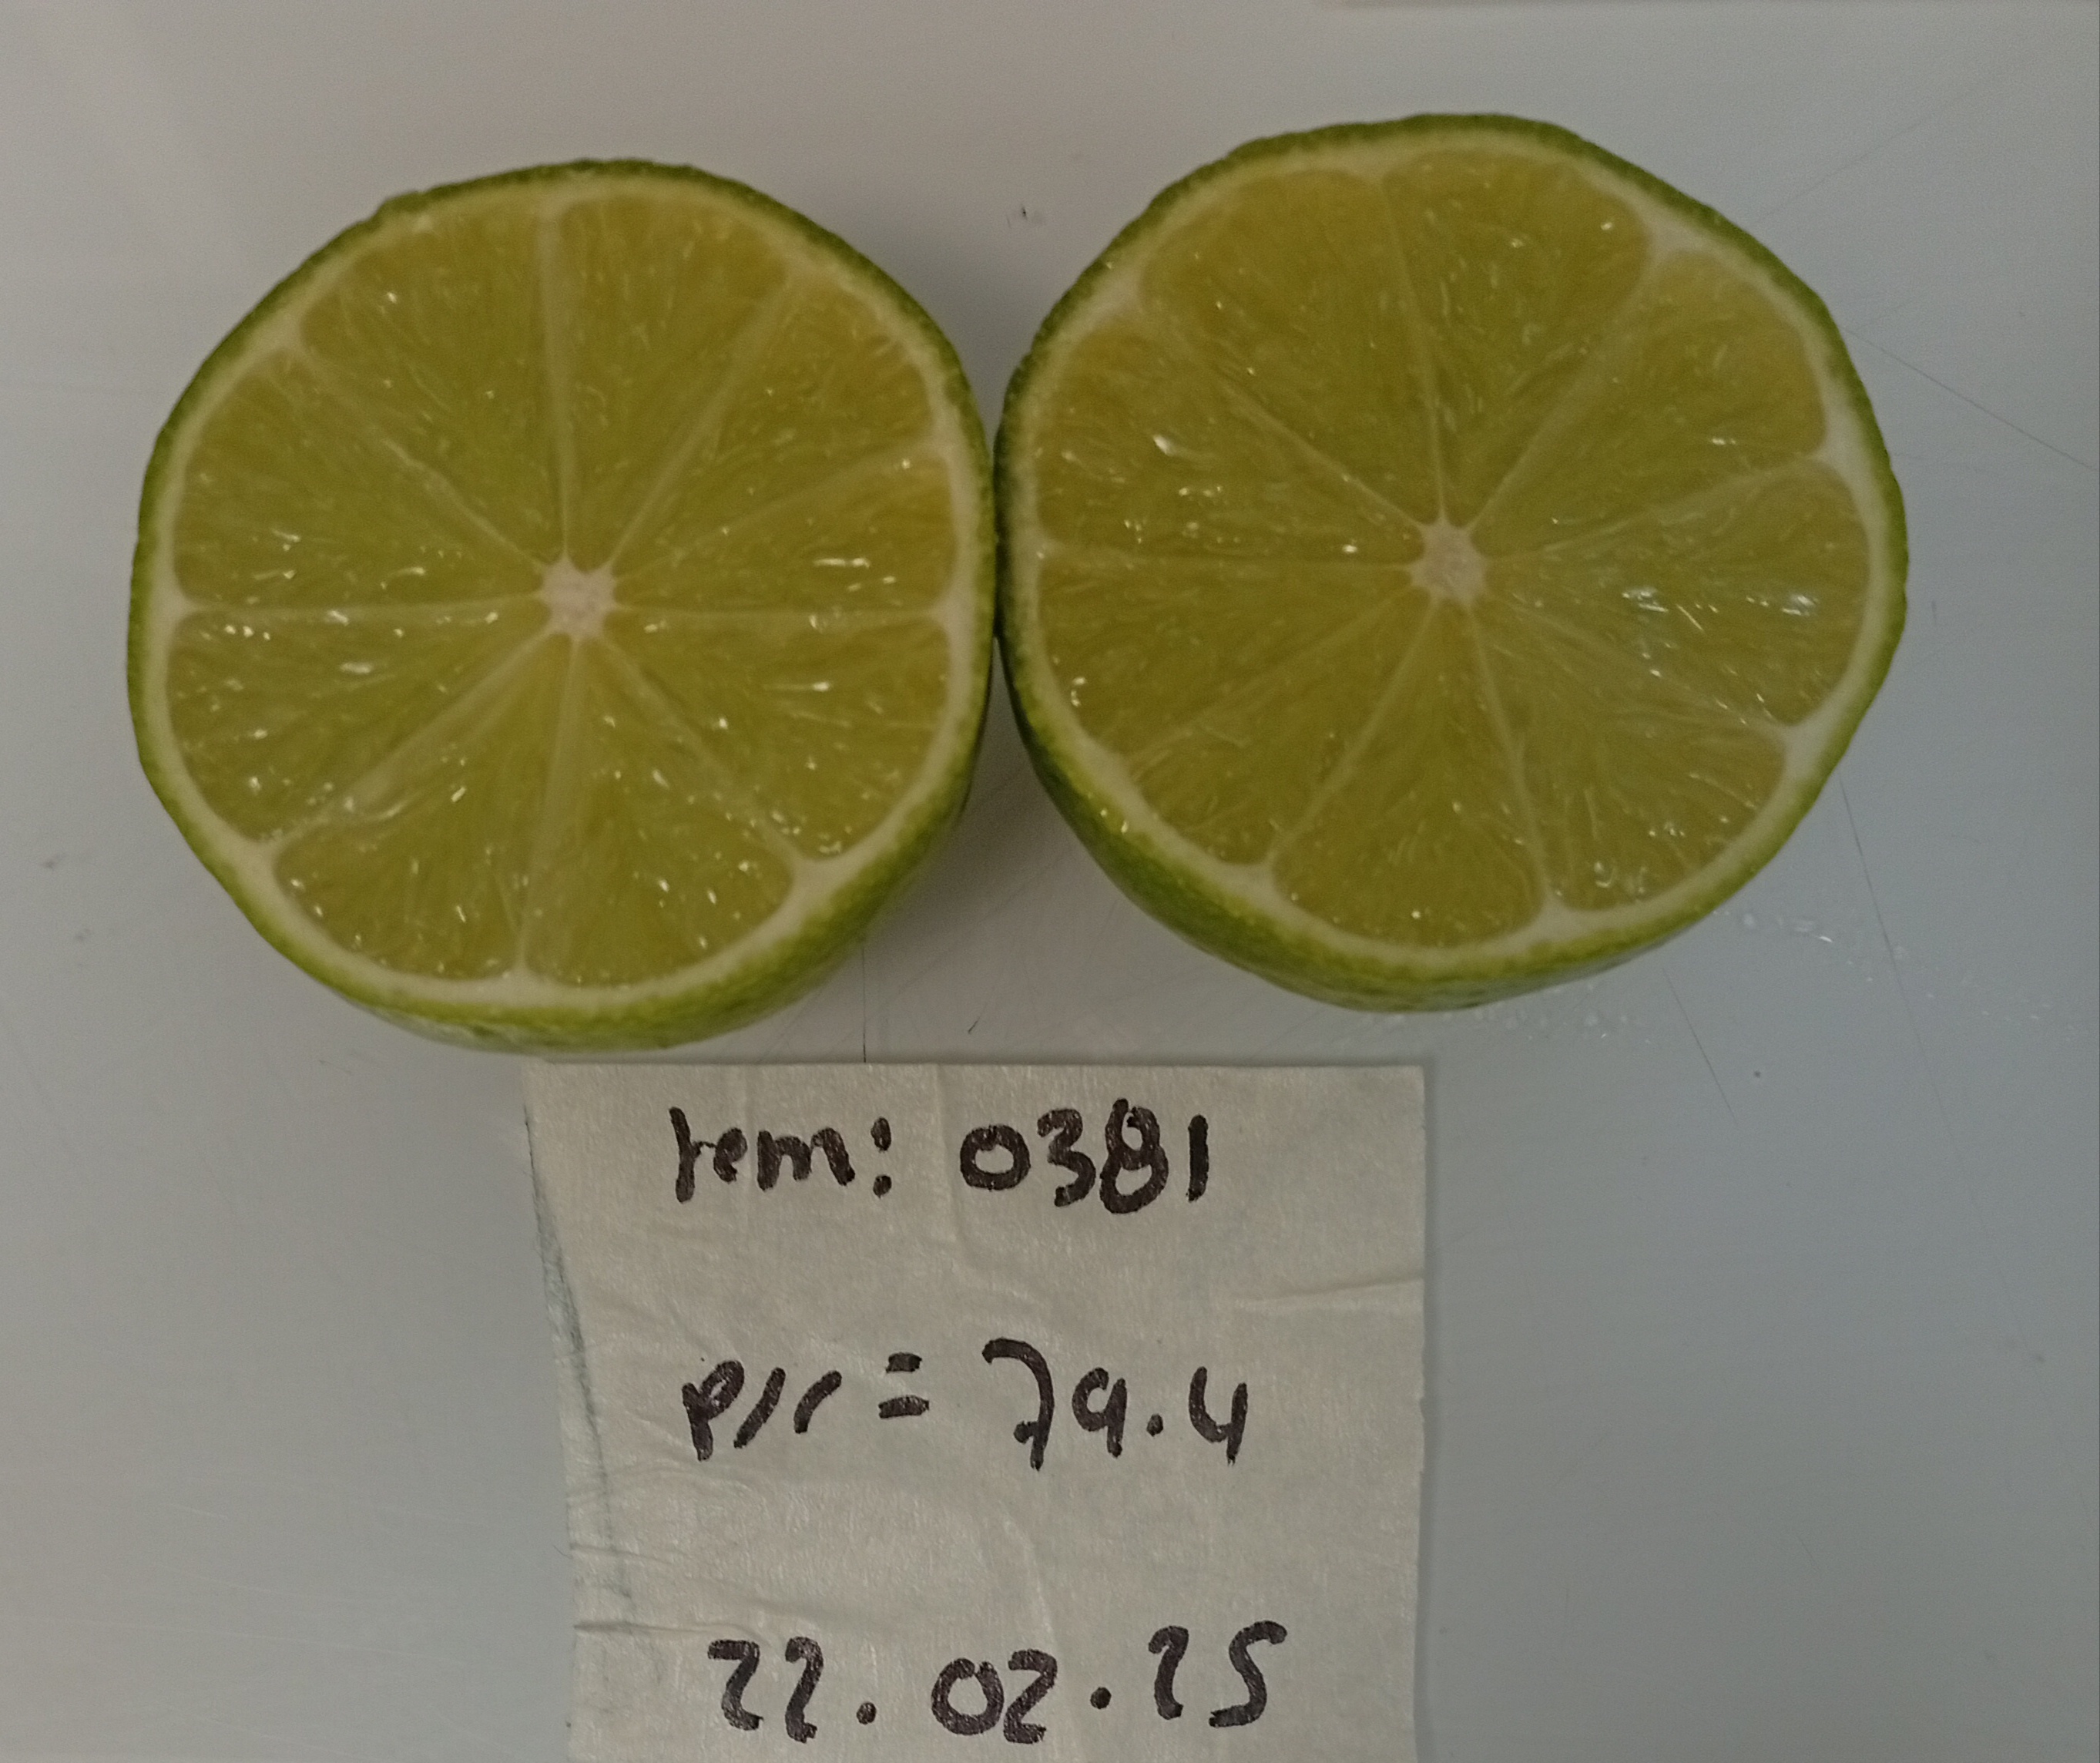 rem: 0381
P/r = 79.4
22.02.25